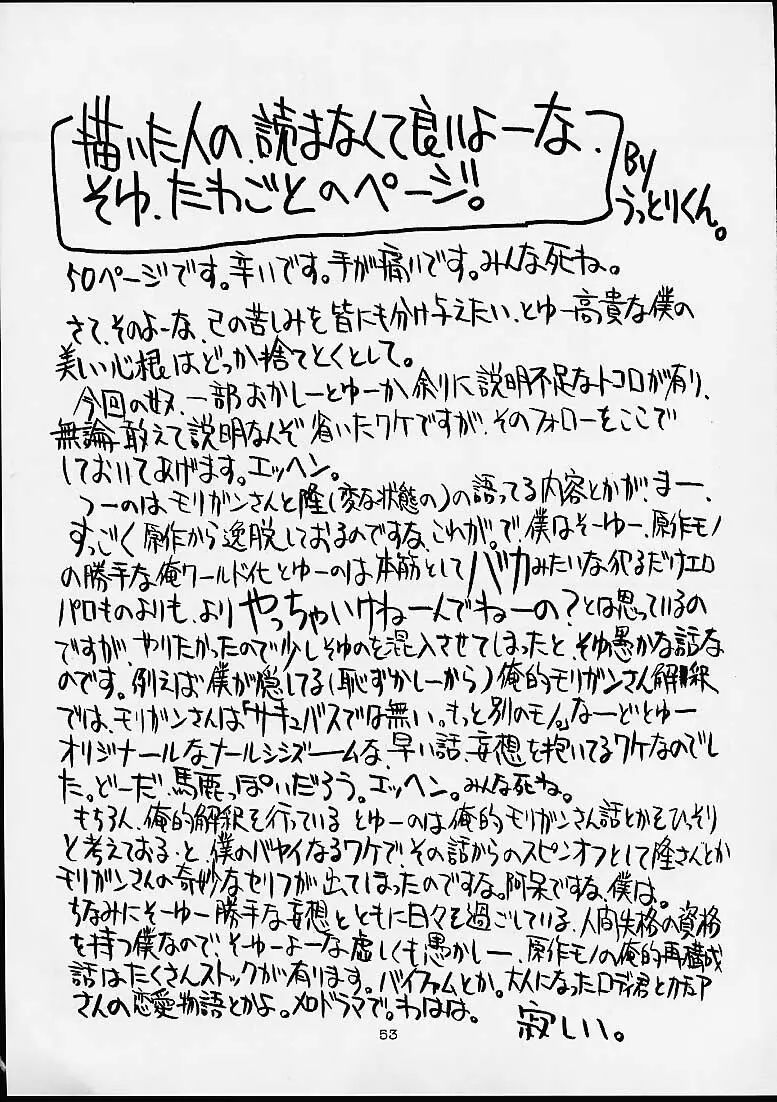 描いた人の、読まなくて良いよーな、
そゆ、たわごとのページ。
By
うっとりくん。
50ページです。辛いです。手が痛いです。みんな死ね。
さて、そのよーな、己の苦しみを皆にも分け与えたい、とゆー高貴な僕の
美しい心根はどっか捨てとくとして。
今回の奴、一部おかしーとゆーか、余りに説明不足なトコロが有り、
無論、敢えて説明なんぞ省いたワケですが、そのフォローをここで
しておいてあげます。エッヘン。
つーのは、モリガンさんと隆(変な状態の)の語ってる内容とかが、まー、
すっごく原作から逸脱しておるのですな、これが。で、僕はそーゆー、原作モノ
の勝手な俺ワールド化とゆーのは本筋としてバカみたいな犯るだけエロ
パロものよりも、よりやっちゃいけねーんでねーの?とは思っているの
ですが、やりたかったので少しそゆのを混入させてしまったと、そゆ愚かな話な
のです。例えば僕が隠してる(恥ずかしーから)俺的モリガンさん解釈
では、モリガンさんは「サキュバスでは無い。もっと別のモノ。」なーどとゆー
オリジナールなナールシシズームな、早い話、妄想を抱いてるワケなのでし
た。どーだ、馬鹿っぽいだろう。エッヘン。みんな死ね。
もちろん、俺的解釈を行っているとゆーのは、俺的モリガンさん話とかをひっそり
と考えておる、と、僕のバヤイなるワケで、その話からのスピンオフとして隆さんとか
モリガンさんの奇妙なセリフが出てしまったのですな。阿呆ですな、僕は。
ちなみにそーゆー勝手な妄想とともに日々を過ごしている、人間失格の資格
を持つ僕なので、そーゆーよーな虚しくも愚かしー、原作モノの俺的再構成
話はたくさんストックが有ります。バイファムとか。大人になったロディ君とカチュア
さんの恋愛物語とかよ。メロドラマで。わはは。
寂しい。
53